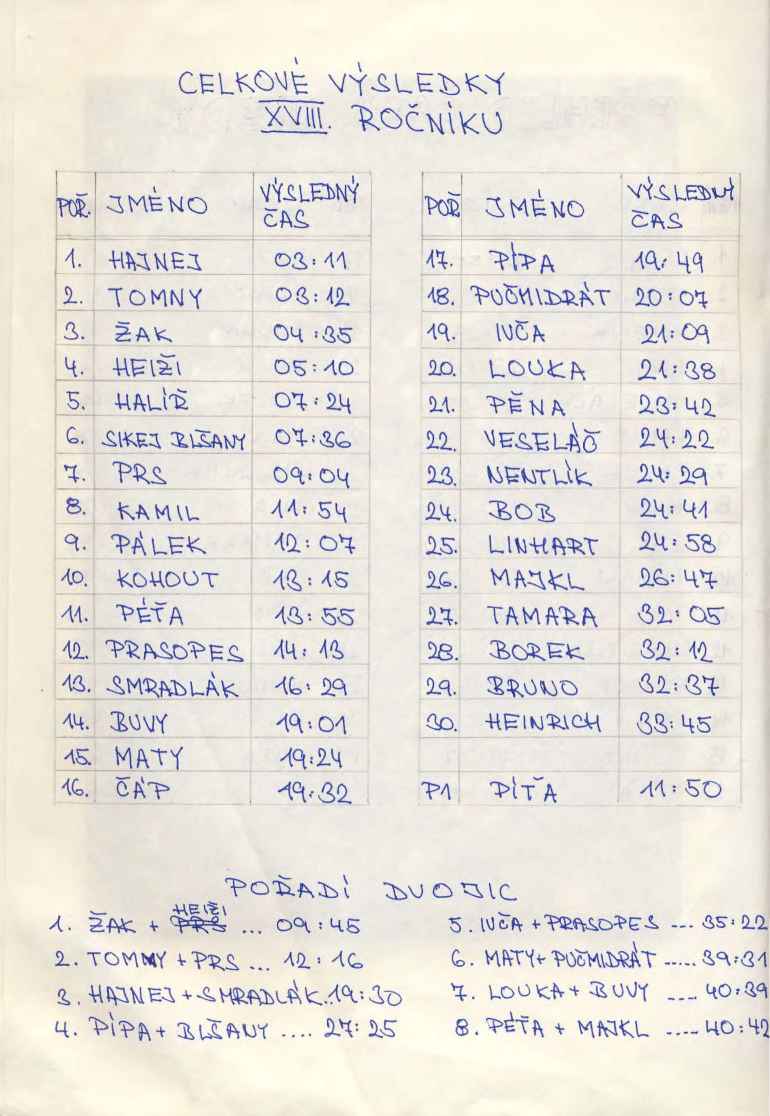 CELKOVÉ VÝSLEDKY
XVIII. ROČNÍKU
POŘ. JMÉNO VÝSLEDNÝ ČAS
1. HAJNEJ 03:11
2. TOMNY 03:12
3. ŽAK 04:35
4. HEIŽI 05:10
5. HALÍŘ 07:24
6. SIKEJ BLŠANY 07:36
7. PRS 09:04
8. KAMIL 11:54
9. PÁLEK 12:07
10. KOHOUT 13:15
11. PÉŤA 13:55
12. PRASOPES 14:13
13. SMRADLÁK 16:29
14. BUVY 19:01
15. MATY 19:24
16. ČÁP 19:32
POŘ JMÉNO VÝSLEDNÝ ČAS
17. PÍPA 19:49
18. PUČMIDRÁT 20:07
19. IUČA 21:09
20. LOUKA 21:38
21. PĚNA 23:42
22. VESELÁČ 24:22
23. NENTLÍK 24:29
24. BOB 24:41
25. LINHART 24:58
26. MAJKL 26:47
27. TAMARA 32:05
28. BOREK 32:12
29. BRUNO 32:37
30. HEINRICH 33:45
P1 PÍŤA 11:50
POŘADÍ DVOJIC
1. ŽAK + PRS HEIŽI ... 09:45
2. TOMNY + PRS ... 12:16
3. HAJNEJ + SMRADLÁK...19:30
4. PÍPA + BLŠANY .... 27:25
5. IUČA + PRASOPES ... 35:22
6. MATY + PUČMIDRÁT ..... 39:31
7. LOUKA + BUVY .... 40:39
8. PÉŤA + MAJKL ..... 40:42